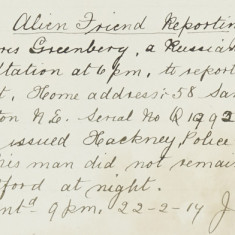 Alien Friend Reportin
ris Greenberg, a Russia
tation at 6 pm, to report
t, Home address:- 58 San
ton N.E. Serial No Q 1292
issued Hackney Police
his man did not remain
ford at night.
nt^d 9 pm. 22-2-17 J